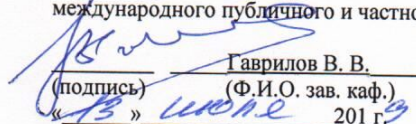 международного публичного и частно
Гаврилов В. В.
(подпись) (Ф.И.О. зав. каф.)
«13» июня 2019